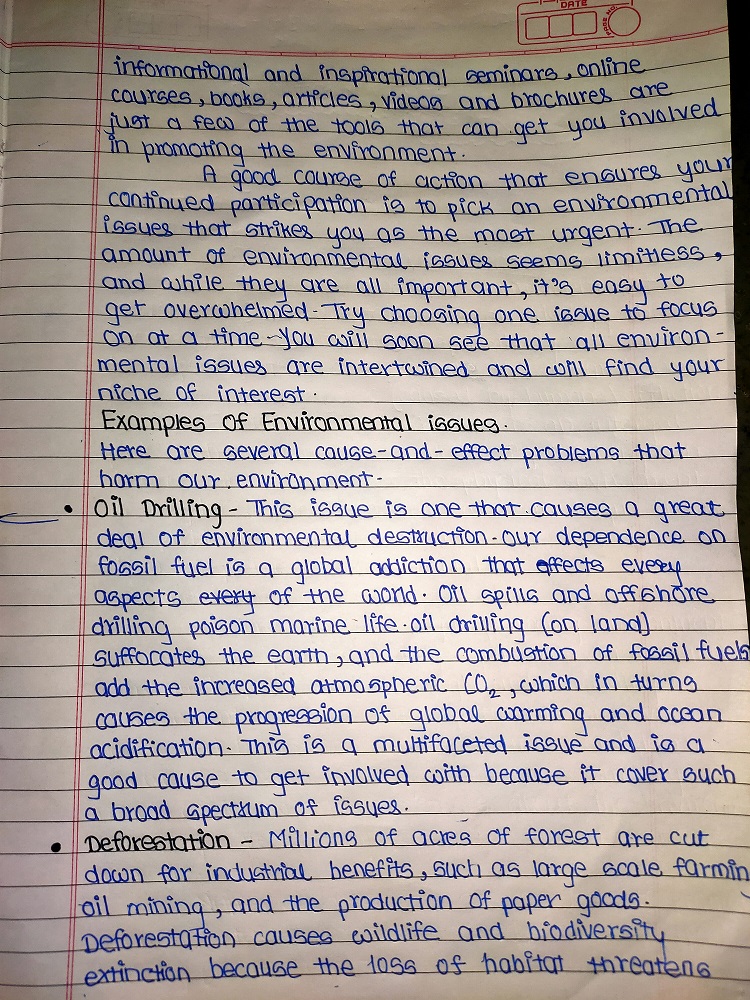 DATE
PAGE NO.
informational and inspirational seminars, online
courses, books, articles, videos and brochures are
just a few of the tools that can get you involved
in promoting the environment.
A good course of action that ensures your
continued participation is to pick an environmental
issues that strikes you as the most urgent. The
amount of environmental issues seems limitless,
and while they are all important, it's easy to
get overwhelmed. Try choosing one issue to focus
on at a time. You will soon see that all environ-
mental issues are intertwined and will find your
niche of interest.
Examples of Environmental issues.
Here are several cause-and-effect problems that
harm our environment-
• Oil Drilling - This issue is one that causes a great
deal of environmental destruction. our dependence on
fossil fuel is a global addiction that effects every
aspects every of the world. Oil spills and offshore
drilling poison marine life. oil drilling (on land)
suffocates the earth, and the combustion of fossil fuels
add the increased atmospheric CO₂, which in turns
causes the progression of global warming and ocean
acidification. This is a multifaceted issue and is a
good cause to get involved with because it cover such
a broad spectrum of issues.
• Deforestation - Millions of acres of forest are cut
down for industrial benefits, such as large scale farmin
oil mining, and the production of paper goods.
Deforestation causes wildlife and biodiversity
extinction because the loss of habitat threatens